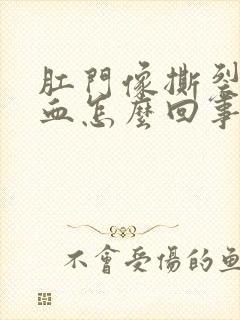 肛門像撕裂
血怎麼回事
不會受傷的魚